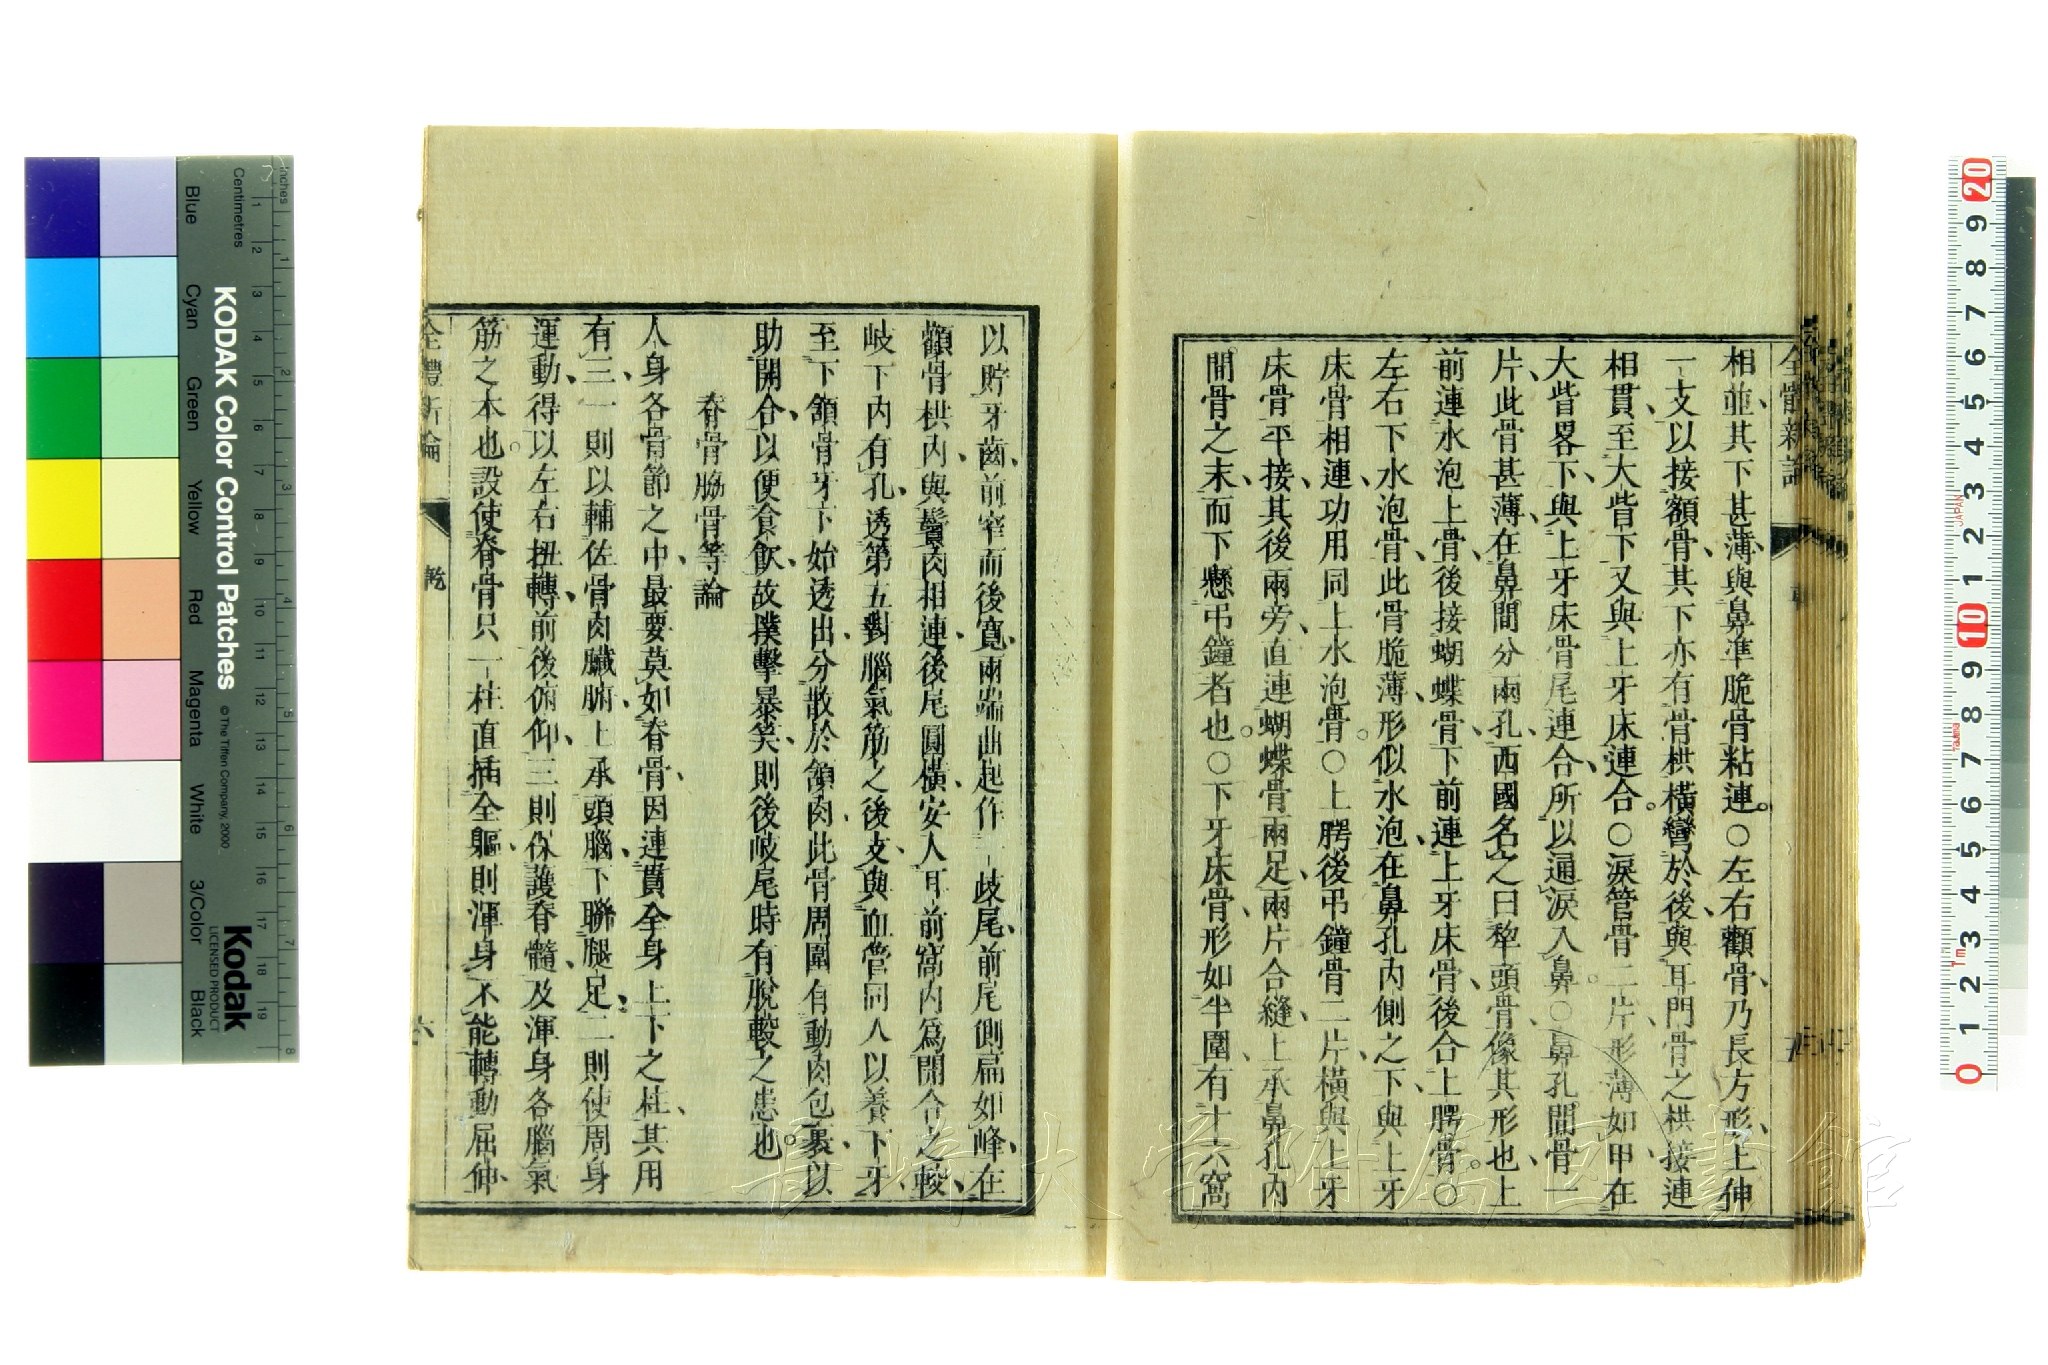 全體新論
相並、其下甚薄、與鼻準脆骨粘連。○左右顴骨、乃長方形、上伸
一支以接額骨、其下亦有骨栱橫彎於後、與耳門骨之栱接連
相貫、至大眥下又與上牙床連合。○淚管骨二片、形薄如甲、在
大眥畧下、與上牙床骨尾連合、所以通淚入鼻。○鼻孔間骨一
片、此骨甚薄、在鼻間分兩孔、西國名之曰犂頭骨、像其形也、上
前連水泡上骨、後接蝴蝶骨、下前連上牙床骨、後合上腭骨。○
左右下水泡骨、此骨脆薄、形似水泡、在鼻孔內側之下、與上牙
床骨相連、功用同上水泡骨。○上腭後吊鐘骨二片、橫與上牙
床骨平接、其後兩旁、直連蝴蝶骨兩足、兩片合縫、上承鼻孔內
間骨之末、而下懸吊鐘者也。○下牙床骨、形如半圍、有十六窩
以貯牙齒、前窄而後寬、兩端曲起作一歧尾、前尾側扁如峰、在
顴骨栱內、與鬢肉相連、後尾圓橫、安人耳前窩內爲開合之骹、
岐下內有孔、透第五對腦氣筋之後支與血管同入以養下牙、
至下頷骨牙下始透出、分散於頷肉、此骨周圍有動肉包裹、以
助開合、以便食飲、故撲擊暴笑、則後歧尾時有脫骹之患也。
脊骨脇骨等論
人身各骨節之中、最要莫如脊骨、因連貫全身上下之柱、其用
有三、一則以輔佐骨肉臟腑、上承頭腦、下聯腿足、二則使周身
運動、得以左右扭轉、前後俯仰、三則保護脊髓、及渾身各腦氣
筋之本也。設使脊骨只一柱直插全軀、則渾身不能轉動屈伸、
全體新論
乾
六
Inches
Centimetres
KODAK Color Control Patches
© The Tiffen Company, 2000
Blue
Cyan
Green
Yellow
Red
Magenta
White
3/Color
Black
Kodak
LICENSED PRODUCT
長崎大学附属図書館
JAPAN